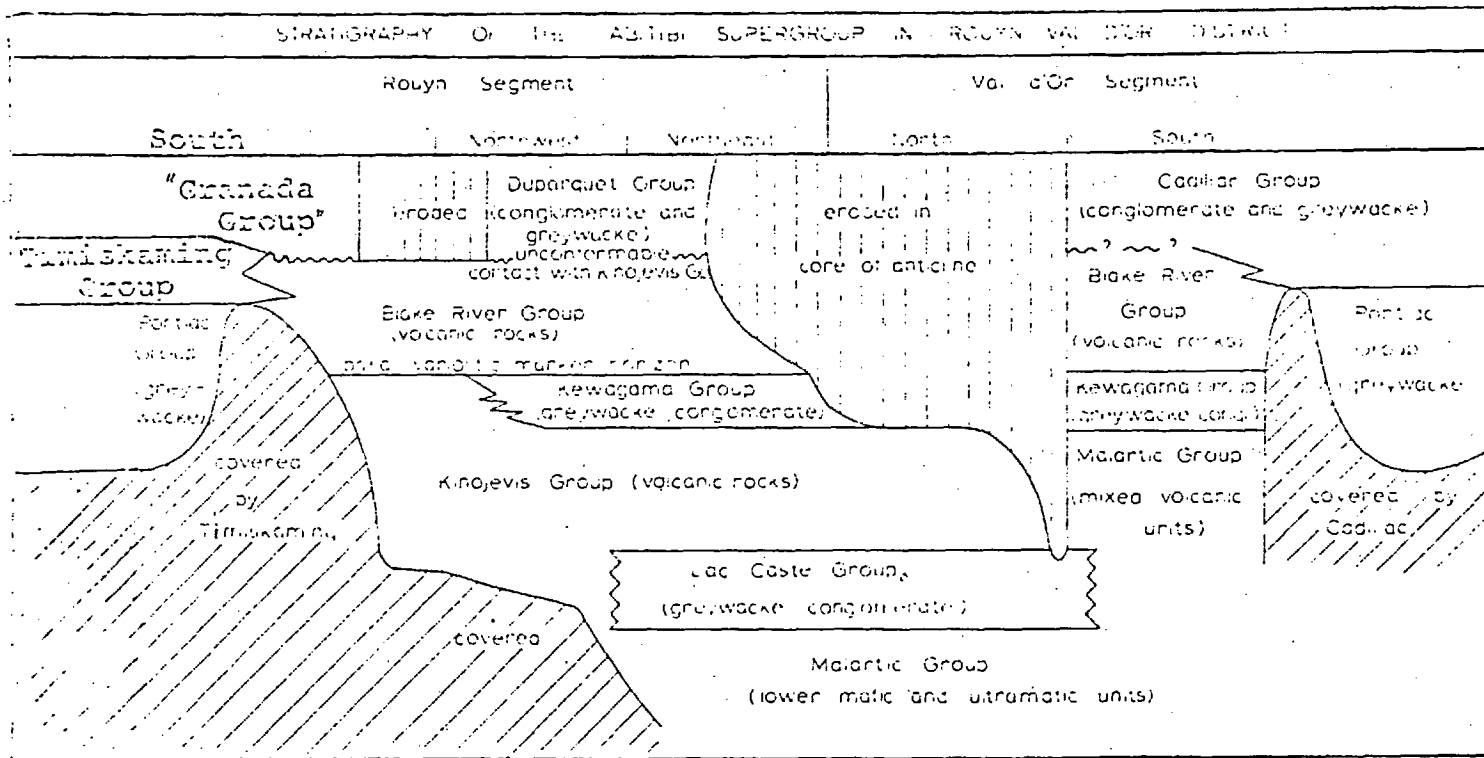 STRATIGRAPHY OF THE ABITIBI SUPERGROUP IN ROUYN VAL D'OR DISTRICT
Rouyn Segment
Val d'Or Segment
South
Northwest
Northeast
North
South
"Granada
Group"
eroded
Duparquet Group
(conglomerate and
greywacke)
unconformable
contact with Kinojevis G
eroded in
core of anticline
Cadillac Group
(conglomerate and greywacke)
Timiskaming
Group
? ?
Blake River
Group
(volcanic rocks)
Pontiac
Group
(grey-
wacke)
Blake River Group
(volcanic rocks)
marker horizon
Kewagama Group
(greywacke, conglomerate)
Kewagama Group
(greywacke congl)
Pontiac
Group
(greywacke
covered
by
Timiskaming
Kinojevis Group (volcanic rocks)
Malartic Group
(mixed volcanic
units)
covered by
Cadillac
Lac Caste Group
(greywacke conglomerate)
covered
Malartic Group
(lower mafic and ultramafic units)